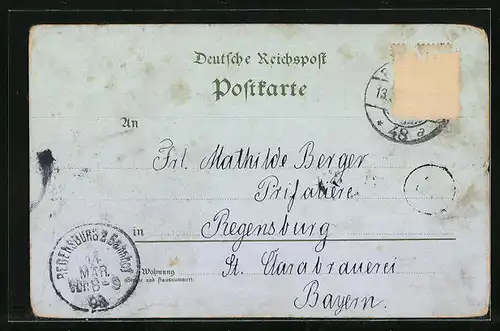 Deutsche Reichspost
Postkarte
An
13.
* 48 a
Frl. Mathilde Berger
in
Regensburg
REGENSBURG 2 Bahnhof
14
MAR.
Vor. 8-9
Wohnung
(Straße und Hausnummer)
St. Clarabrauerei
Bayern.